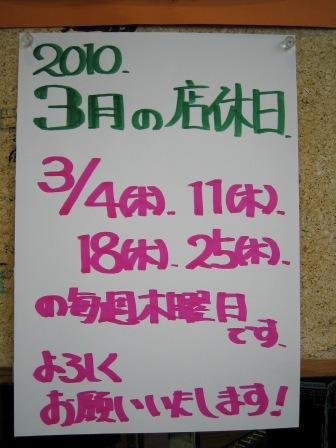 2010.
3月の店休日.
3/4(木). 11(木).
18(木). 25(木).
の毎週木曜日
です.
よろしく
お願いいたします!